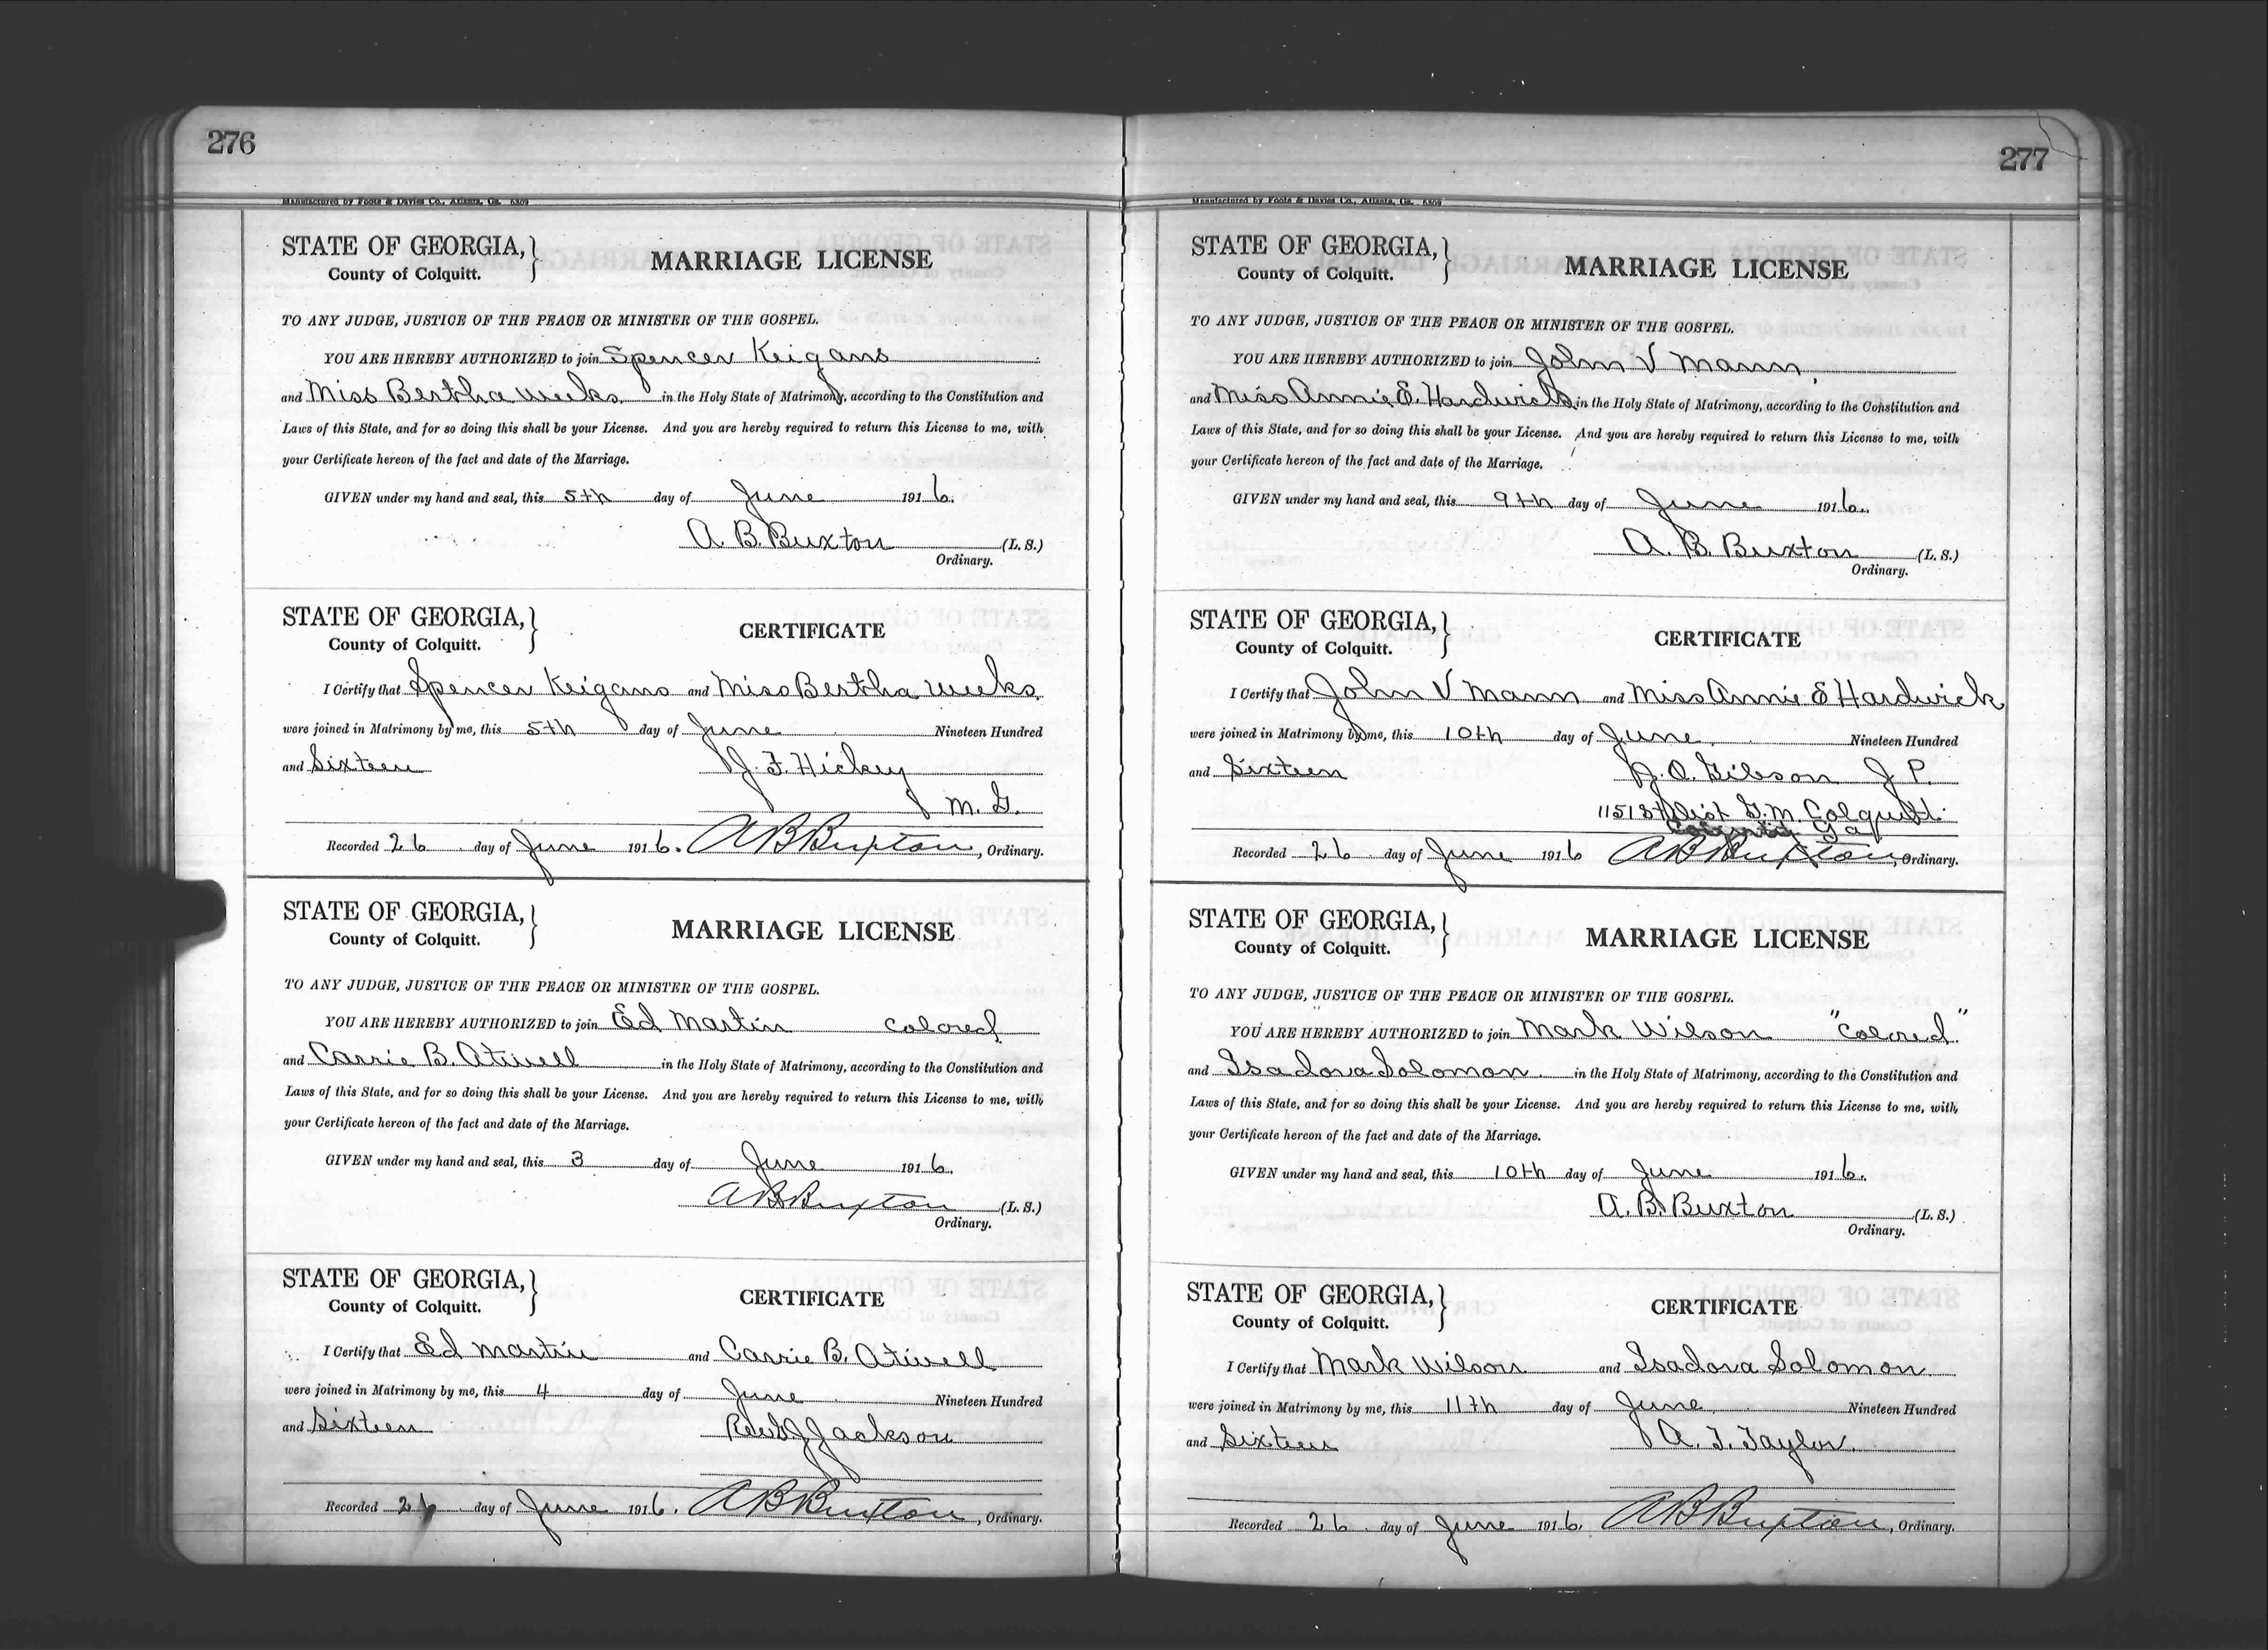 276
Manufactured by Foote & Davies Co., Atlanta, Ga. 5309
STATE OF GEORGIA,
County of Colquitt.
MARRIAGE LICENSE
TO ANY JUDGE, JUSTICE OF THE PEACE OR MINISTER OF THE GOSPEL.
YOU ARE HEREBY AUTHORIZED to join Spencer Keigans
and Miss Bertha Weeks in the Holy State of Matrimony, according to the Constitution and
Laws of this State, and for so doing this shall be your License. And you are hereby required to return this License to me, with
your Certificate hereon of the fact and date of the Marriage.
GIVEN under my hand and seal, this 5th day of June 1916.
A. B. Buxton (L. S.)
Ordinary.
STATE OF GEORGIA,
County of Colquitt.
CERTIFICATE
I Certify that Spencer Keigans and Miss Bertha Weeks
were joined in Matrimony by me, this 5th day of June Nineteen Hundred
and Sixteen J. F. Hickey
M. G.
Recorded 26 day of June 1916. A B Buxton, Ordinary.
STATE OF GEORGIA,
County of Colquitt.
MARRIAGE LICENSE
TO ANY JUDGE, JUSTICE OF THE PEACE OR MINISTER OF THE GOSPEL.
YOU ARE HEREBY AUTHORIZED to join Ed Martin colored
and Carrie B. Atwell in the Holy State of Matrimony, according to the Constitution and
Laws of this State, and for so doing this shall be your License. And you are hereby required to return this License to me, with
your Certificate hereon of the fact and date of the Marriage.
GIVEN under my hand and seal, this 3 day of June 1916.
A B Buxton (L. S.)
Ordinary.
STATE OF GEORGIA,
County of Colquitt.
CERTIFICATE
I Certify that Ed Martin and Carrie B. Atwell
were joined in Matrimony by me, this 4 day of June Nineteen Hundred
and Sixteen Jackson
Recorded 26 day of June 1916. A B Buxton, Ordinary.
277
Manufactured by Foote & Davies Co., Atlanta, Ga. 5309
STATE OF GEORGIA,
County of Colquitt.
MARRIAGE LICENSE
TO ANY JUDGE, JUSTICE OF THE PEACE OR MINISTER OF THE GOSPEL.
YOU ARE HEREBY AUTHORIZED to join John V Mann
and Miss Annie E. Hardwick in the Holy State of Matrimony, according to the Constitution and
Laws of this State, and for so doing this shall be your License. And you are hereby required to return this License to me, with
your Certificate hereon of the fact and date of the Marriage.
GIVEN under my hand and seal, this 9th day of June 1916.
A. B. Buxton (L. S.)
Ordinary.
STATE OF GEORGIA,
County of Colquitt.
CERTIFICATE
I Certify that John V Mann and Miss Annie E Hardwick
were joined in Matrimony by me, this 10th day of June Nineteen Hundred
and Sixteen J. O. Gibson J P.
1151st Dist G. M. Colquitt
County Ga
Recorded 26 day of June 1916 A B Buxton, Ordinary.
STATE OF GEORGIA,
County of Colquitt.
MARRIAGE LICENSE
TO ANY JUDGE, JUSTICE OF THE PEACE OR MINISTER OF THE GOSPEL.
YOU ARE HEREBY AUTHORIZED to join Mark Wilson "Colored"
and Isadora Solomon in the Holy State of Matrimony, according to the Constitution and
Laws of this State, and for so doing this shall be your License. And you are hereby required to return this License to me, with
your Certificate hereon of the fact and date of the Marriage.
GIVEN under my hand and seal, this 10th day of June 1916.
A. B. Buxton (L. S.)
Ordinary.
STATE OF GEORGIA,
County of Colquitt.
CERTIFICATE
I Certify that Mark Wilson and Isadora Solomon
were joined in Matrimony by me, this 11th day of June Nineteen Hundred
and Sixteen A. T. Taylor
Recorded 26 day of June 1916. A B Buxton, Ordinary.